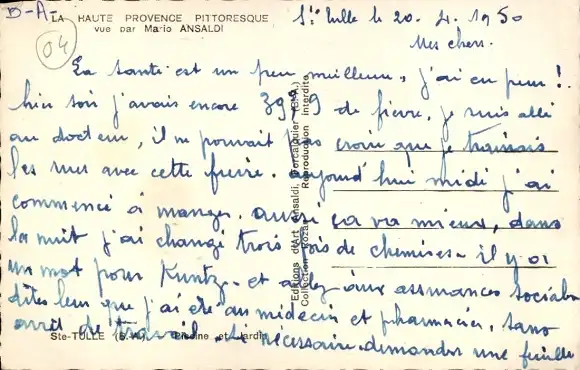 B-A-
LA HAUTE PROVENCE PITTORESQUE
vue par Mario ANSALDI
04
Ste Tulle le 20. 4. 1950
Mes chers.
La santé est un peu meilleure, j'ai eu peur !
hier soir j'avais encore 39°9 de fièvre, je suis allé
au docteur, il ne pouvait pas croire que je trainais
les rues avec cette fievre. aujourd'hui midi j'ai
commencé à manger. aussi ça va mieux, dans
la nuit j'ai changé trois fois de chemises. il y a
un mot pour Kuntz. et allez aux assurances sociales
dites leur que j'ai été au médecin et pharmacien, sans
arrêt de travail. si nécessaire demander une feuille
Ste-TULLE (B.-A.) Piscine et Jardin
Editions d'Art Ansaldi, Forcalquier (B.A.)
Collection Rozan Reproduction interdite